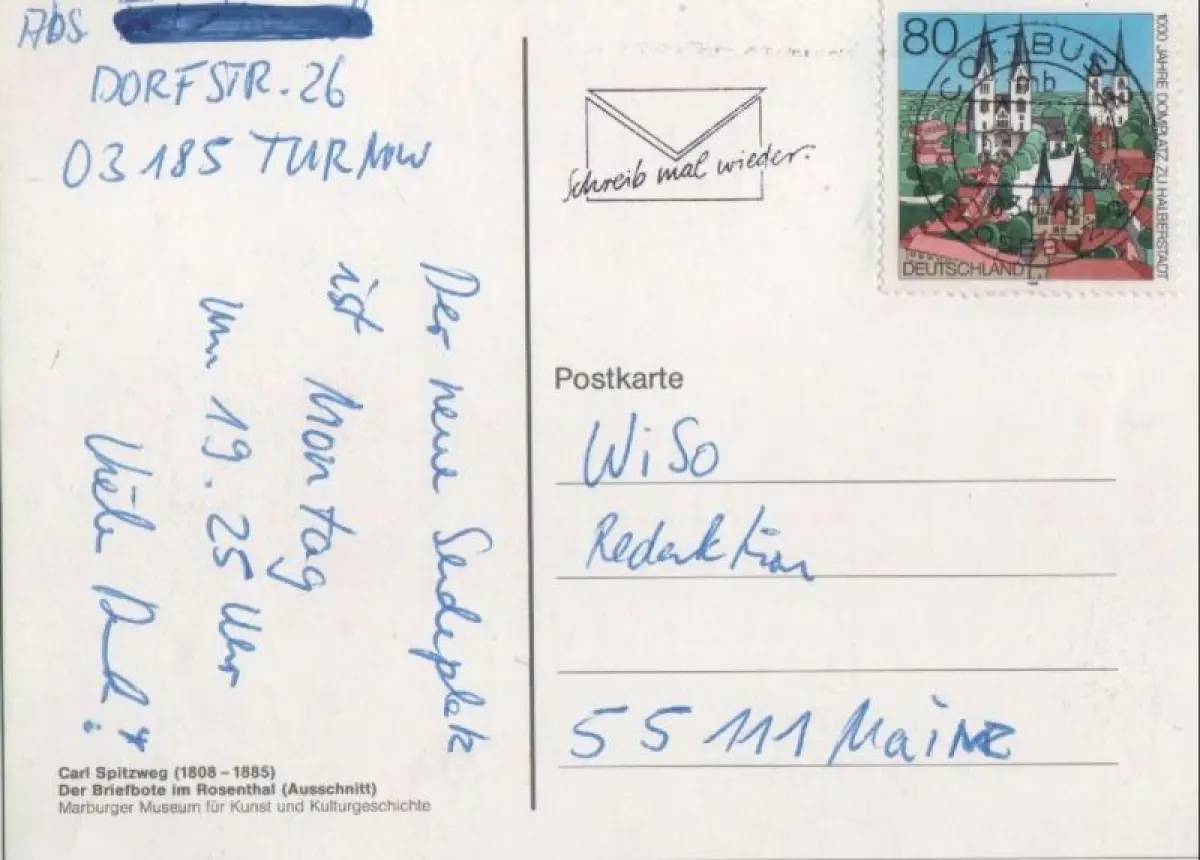 Abs
DORFSTR. 26
03185 TURNOW
Der neue Sendeplatz
ist Montag
um 19.25 Uhr
Vielen Dank!
Carl Spitzweg (1808 – 1885)
Der Briefbote im Rosenthal (Ausschnitt)
Marburger Museum für Kunst und Kulturgeschichte
Schreib mal wieder.
80
1000 JAHRE DOMPLATZ ZU HALBERSTADT
DEUTSCHLAND
COTTBUS
mb
Postkarte
WiSo
Redaktion
55111 Mainz